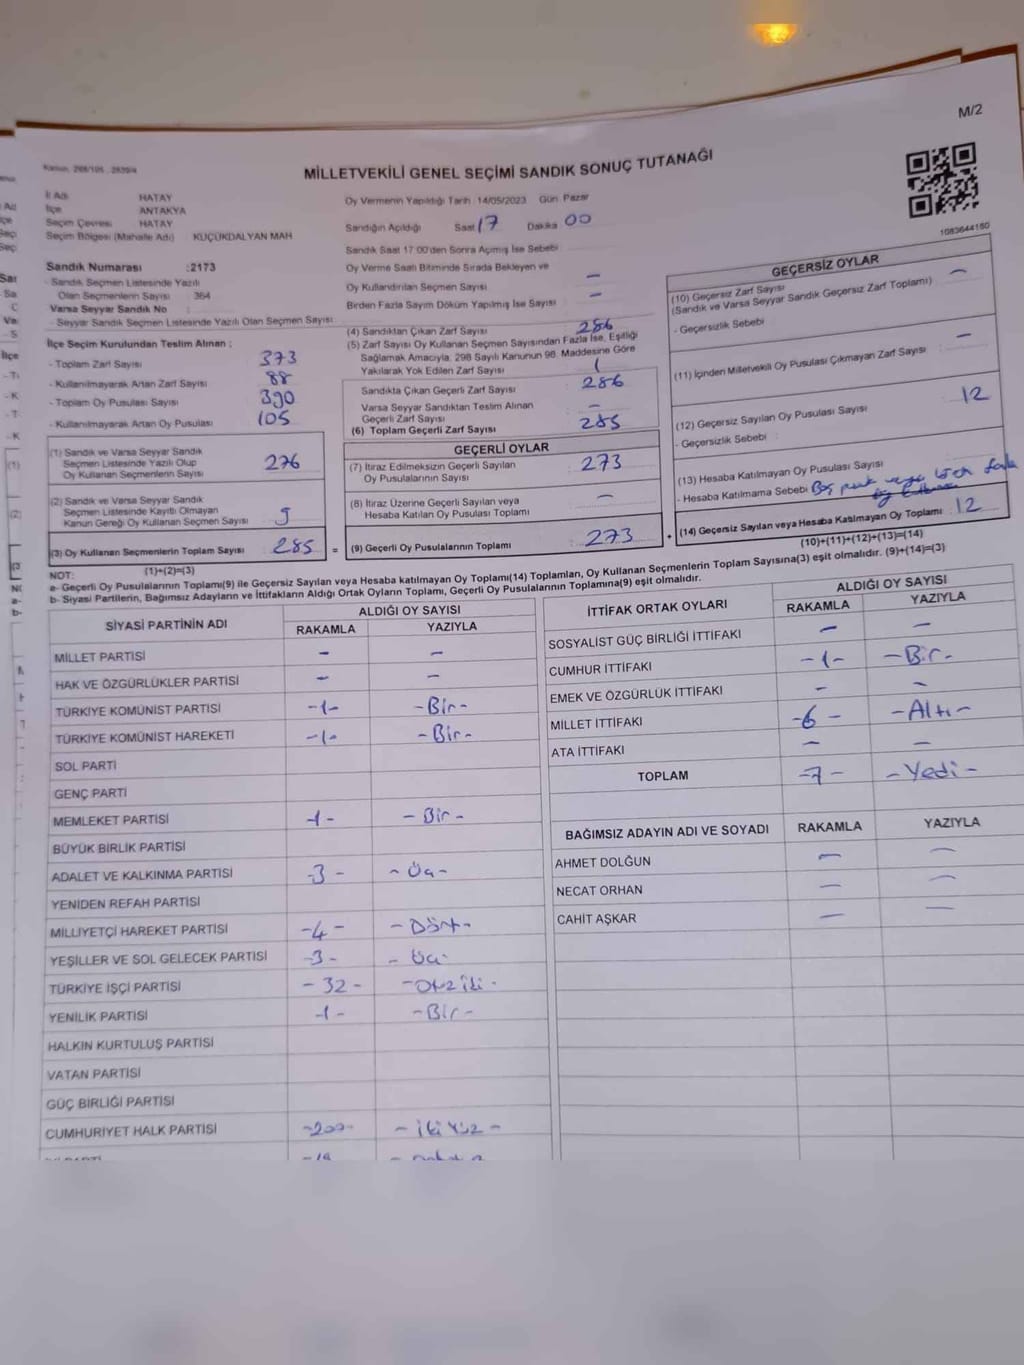 M/2
Kanun: 298/105 , 2839/4
MİLLETVEKİLİ GENEL SEÇİMİ SANDIK SONUÇ TUTANAĞI
1083644160
İl Adı HATAY
İlçe ANTAKYA
Seçim Çevresi HATAY
Seçim Bölgesi (Mahalle Adı) : KÜÇÜKDALYAN MAH
Sandık Numarası :2173
- Sandık Seçmen Listesinde Yazılı
Olan Seçmenlerin Sayısı : 364
Varsa Seyyar Sandık No :
- Seyyar Sandık Seçmen Listesinde Yazılı Olan Seçmen Sayısı :
İlçe Seçim Kurulundan Teslim Alınan ;
- Toplam Zarf Sayısı : 373
- Kullanılmayarak Artan Zarf Sayısı : 88
- Toplam Oy Pusulası Sayısı : 390
- Kullanılmayarak Artan Oy Pusulası : 105
(1) Sandık ve Varsa Seyyar Sandık
Seçmen Listesinde Yazılı Olup
Oy Kullanan Seçmenlerin Sayısı : 276
(2) Sandık ve Varsa Seyyar Sandık
Seçmen Listesinde Kayıtlı Olmayan
Kanun Gereği Oy Kullanan Seçmen Sayısı : 9
(3) Oy Kullanan Seçmenlerin Toplam Sayısı : 285 =
(1)+(2)=(3)
Oy Vermenin Yapıldığı Tarih : 14/05/2023 Gün: Pazar
Sandığın Açıldığı Saat: 17 Dakika: 00
Sandık Saat 17:00'den Sonra Açımış İse Sebebi :
Oy Verme Saati Bitiminde Sırada Bekleyen ve
Oy Kullandırılan Seçmen Sayısı : -
Birden Fazla Sayım Döküm Yapılmış İse Sayısı : -
(4) Sandıktan Çıkan Zarf Sayısı : 286
(5) Zarf Sayısı Oy Kullanan Seçmen Sayısından Fazla İse, Eşitliği
Sağlamak Amacıyla, 298 Sayılı Kanunun 98. Maddesine Göre
Yakılarak Yok Edilen Zarf Sayısı : 1
Sandıkta Çıkan Geçerli Zarf Sayısı : 286
Varsa Seyyar Sandıktan Teslim Alınan
Geçerli Zarf Sayısı : -
(6) Toplam Geçerli Zarf Sayısı : 285
GEÇERLİ OYLAR
(7) İtiraz Edilmeksizin Geçerli Sayılan
Oy Pusulalarının Sayısı : 273
(8) İtiraz Üzerine Geçerli Sayılan veya
Hesaba Katılan Oy Pusulası Toplamı : -
(9) Geçerli Oy Pusulalarının Toplamı : 273 +
GEÇERSİZ OYLAR
(10) Geçersiz Zarf Sayısı : -
(Sandık ve Varsa Seyyar Sandık Geçersiz Zarf Toplamı)
- Geçersizlik Sebebi :
(11) İçinden Milletvekili Oy Pusulası Çıkmayan Zarf Sayısı : -
(12) Geçersiz Sayılan Oy Pusulası Sayısı : 12
- Geçersizlik Sebebi :
(13) Hesaba Katılmayan Oy Pusulası Sayısı :
- Hesaba Katılmama Sebebi : Boş pusula veya birden fazla
(14) Geçersiz Sayılan veya Hesaba Katılmayan Oy Toplamı : 12
(10)+(11)+(12)+(13)=(14)
NOT:
a- Geçerli Oy Pusulalarının Toplamı(9) ile Geçersiz Sayılan veya Hesaba katılmayan Oy Toplamı(14) Toplamları, Oy Kullanan Seçmenlerin Toplam Sayısına(3) eşit olmalıdır. (9)+(14)=(3)
b- Siyasi Partilerin, Bağımsız Adayların ve İttifakların Aldığı Ortak Oyların Toplamı, Geçerli Oy Pusulalarının Toplamına(9) eşit olmalıdır.
SİYASİ PARTİNİN ADI ALDIĞI OY SAYISI
RAKAMLA YAZIYLA
MİLLET PARTİSİ - -
HAK VE ÖZGÜRLÜKLER PARTİSİ - -
TÜRKİYE KOMÜNİST PARTİSİ -1- -Bir-
TÜRKİYE KOMÜNİST HAREKETİ -1- -Bir-
SOL PARTİ
GENÇ PARTİ
MEMLEKET PARTİSİ -1- -Bir-
BÜYÜK BİRLİK PARTİSİ
ADALET VE KALKINMA PARTİSİ -3- -Üç-
YENİDEN REFAH PARTİSİ
MİLLİYETÇİ HAREKET PARTİSİ -4- -Dört-
YEŞİLLER VE SOL GELECEK PARTİSİ -3- -Üç-
TÜRKİYE İŞÇİ PARTİSİ -32- -Otuz iki-
YENİLİK PARTİSİ -1- -Bir-
HALKIN KURTULUŞ PARTİSİ
VATAN PARTİSİ
GÜÇ BİRLİĞİ PARTİSİ
CUMHURİYET HALK PARTİSİ -200- -İki Yüz-
İTTİFAK ORTAK OYLARI ALDIĞI OY SAYISI
RAKAMLA YAZIYLA
SOSYALİST GÜÇ BİRLİĞİ İTTİFAKI - -
CUMHUR İTTİFAKI -1- -Bir-
EMEK VE ÖZGÜRLÜK İTTİFAKI - -
MİLLET İTTİFAKI -6- -Altı-
ATA İTTİFAKI - -
TOPLAM -7- -Yedi-
BAĞIMSIZ ADAYIN ADI VE SOYADI RAKAMLA YAZIYLA
AHMET DOLĞUN - -
NECAT ORHAN - -
CAHİT AŞKAR - -